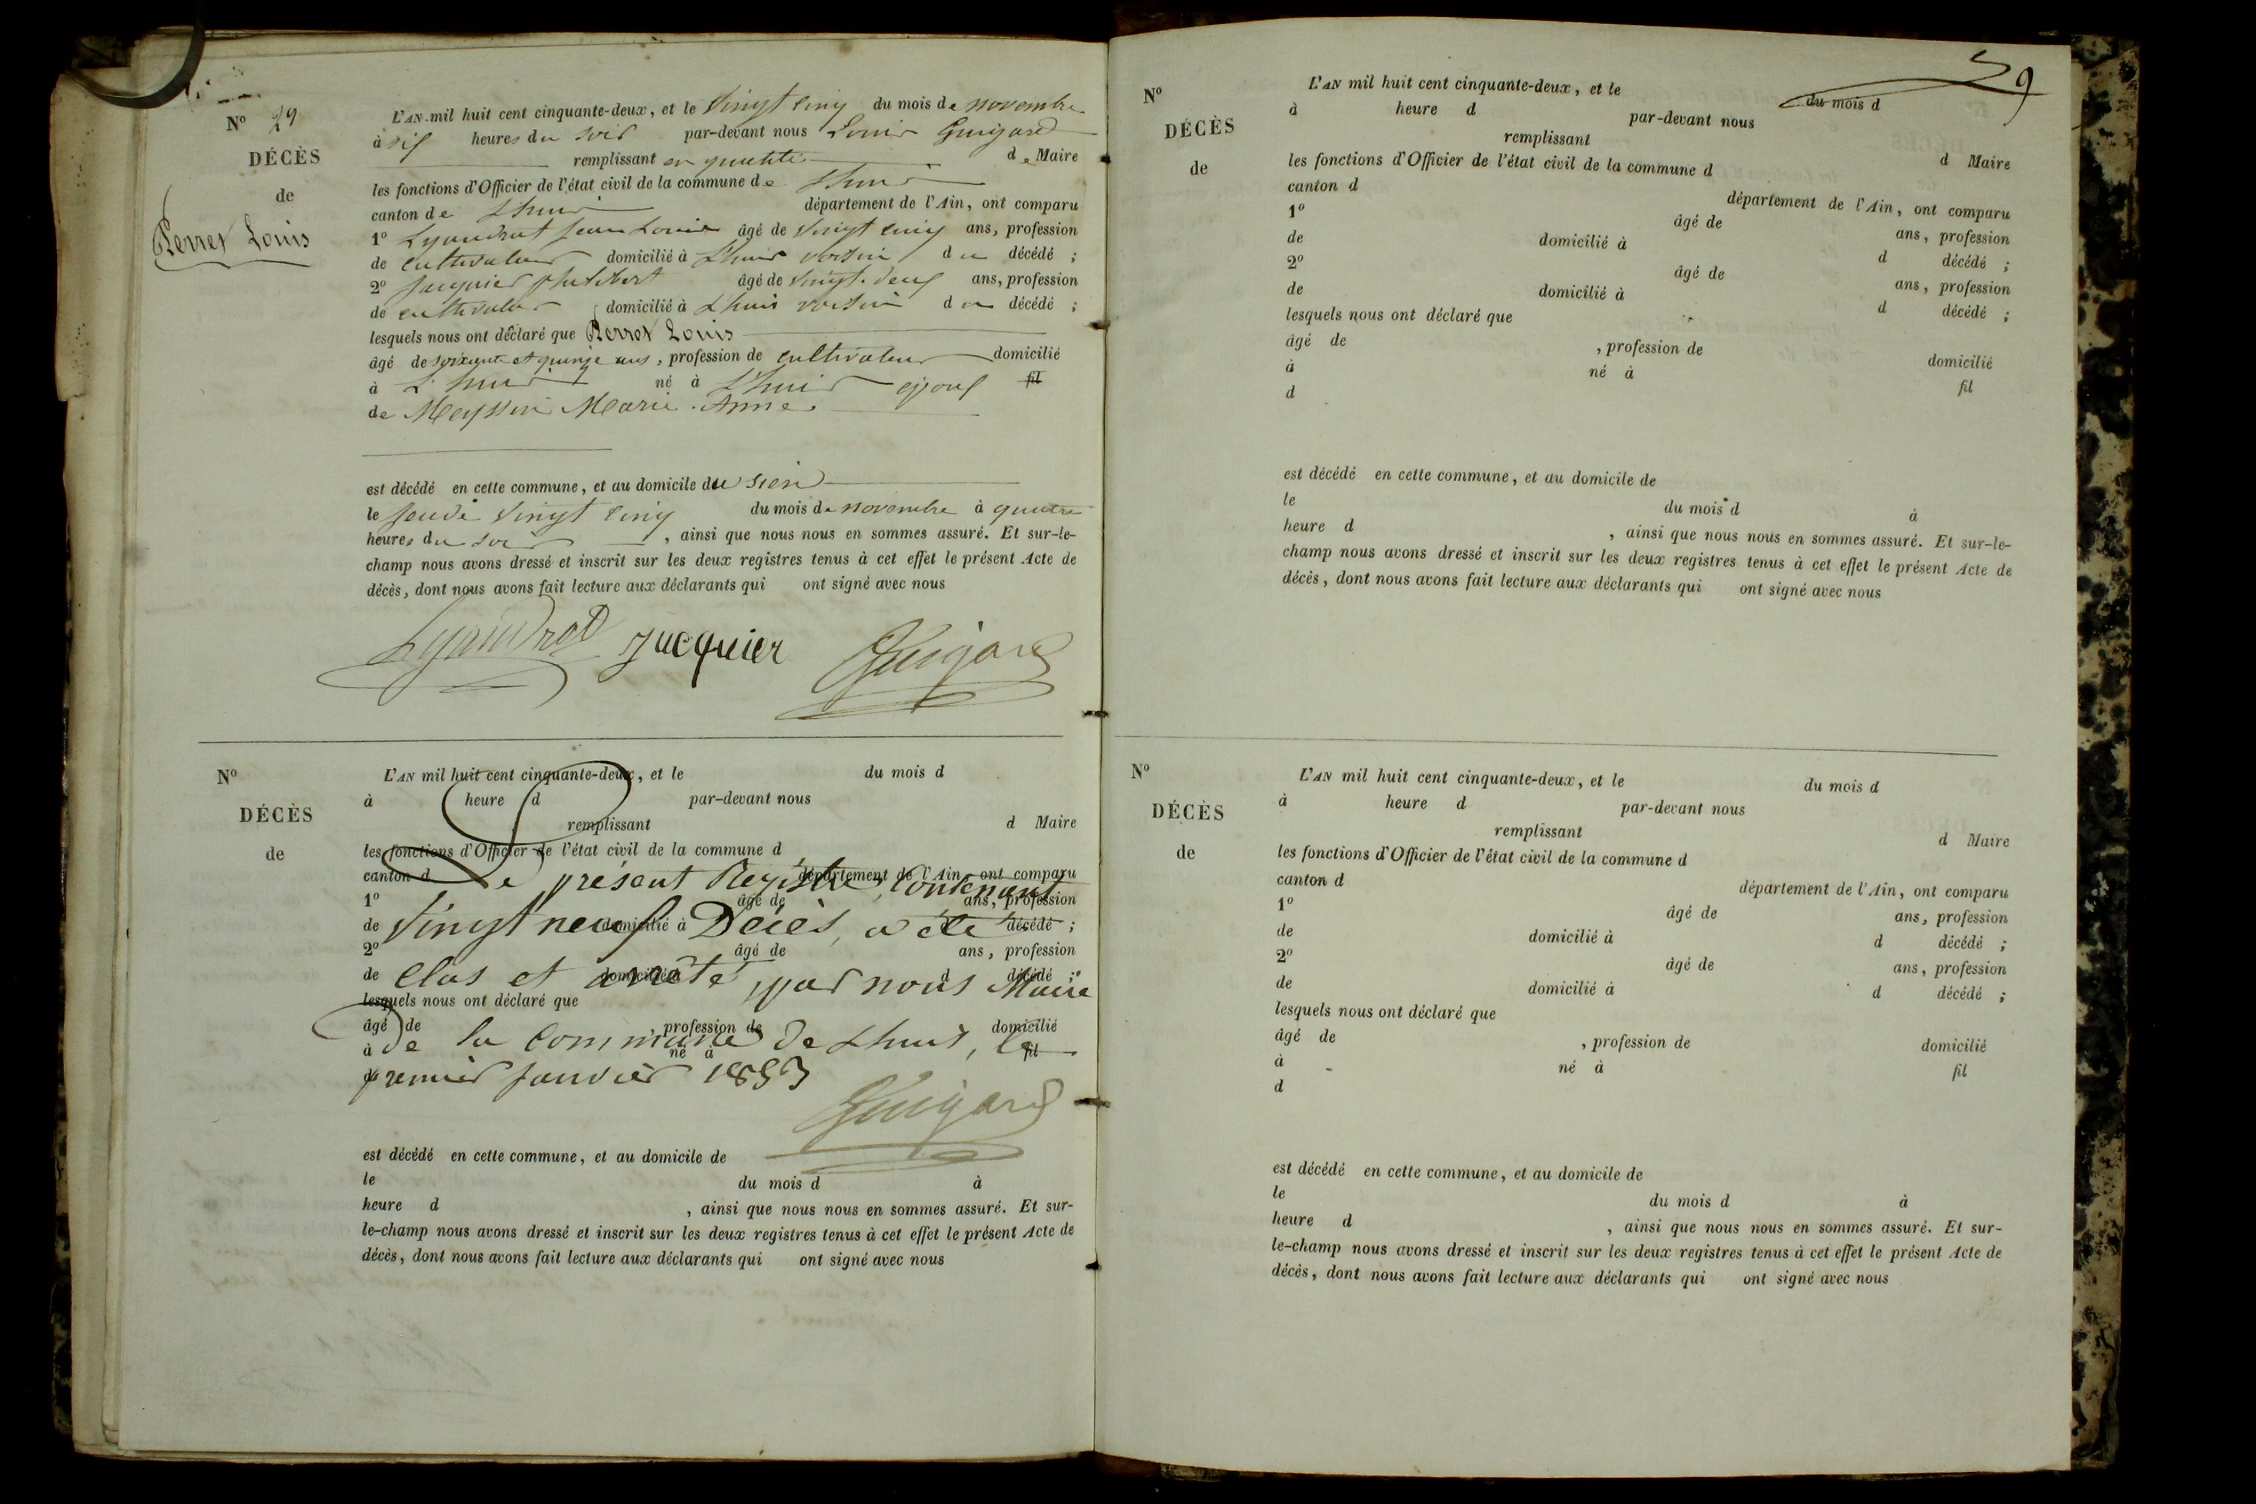 N° 29
DÉCÈS
de
Perret Louis
L'AN mil huit cent cinquante-deux, et le vingt cinq du mois de novembre
à six heures du soir par-devant nous Louis Guigard
remplissant en qualité de Maire
les fonctions d'Officier de l'état civil de la commune de Lhuis
canton de Lhuis département de l'Ain, ont comparu
1° Lyaudrat Jean Louis âgé de vingt cinq ans, profession
de cultivateur domicilié à Lhuis voisin du décédé ;
2° Juquier Philibert âgé de vingt-deux ans, profession
de cultivateur domicilié à Lhuis voisin du décédé ;
lesquels nous ont déclaré que Perret Louis
âgé de soixante et quinze ans, profession de cultivateur domicilié
à Lhuis né à Lhuis époux fil
de Meyssin Marie-Anne
est décédé en cette commune, et au domicile du sien
le jeudi vingt cinq du mois de novembre à quatre
heures du soir, ainsi que nous nous en sommes assuré. Et sur-le-
champ nous avons dressé et inscrit sur les deux registres tenus à cet effet le présent Acte de
décès, dont nous avons fait lecture aux déclarants qui ont signé avec nous
Lyaudrat Juquier Guigard
N°
DÉCÈS
de
L'AN mil huit cent cinquante-deux, et le du mois d
à heure d par-devant nous
remplissant d Maire
les fonctions d'Officier de l'état civil de la commune d
canton d département de l'Ain, ont comparu
Le présent Registre, Contenant
1° âgé de ans, profession
de domicilié à décédé ;
vingt neuf Décès, a été
2° âgé de ans, profession
de domicilié à d décédé ;
clos et arrêté par nous Maire
lesquels nous ont déclaré que
âgé de profession de domicilié
de la commune de Lhuis, le
à né à fil
premier janvier 1853
Guigard
est décédé en cette commune, et au domicile de
le du mois d à
heure d , ainsi que nous nous en sommes assuré. Et sur-
le-champ nous avons dressé et inscrit sur les deux registres tenus à cet effet le présent Acte de
décès, dont nous avons fait lecture aux déclarants qui ont signé avec nous
9
N°
DÉCÈS
de
L'AN mil huit cent cinquante-deux, et le du mois d
à heure d par-devant nous
remplissant d Maire
les fonctions d'Officier de l'état civil de la commune d
canton d département de l'Ain, ont comparu
1° âgé de ans, profession
de domicilié à d décédé ;
2° âgé de ans, profession
de domicilié à d décédé ;
lesquels nous ont déclaré que
âgé de , profession de domicilié
à né à fil
d
est décédé en cette commune, et au domicile de
le du mois d à
heure d , ainsi que nous nous en sommes assuré. Et sur-le-
champ nous avons dressé et inscrit sur les deux registres tenus à cet effet le présent Acte de
décès, dont nous avons fait lecture aux déclarants qui ont signé avec nous
N°
DÉCÈS
de
L'AN mil huit cent cinquante-deux, et le du mois d
à heure d par-devant nous
remplissant d Maire
les fonctions d'Officier de l'état civil de la commune d
canton d département de l'Ain, ont comparu
1° âgé de ans, profession
de domicilié à d décédé ;
2° âgé de ans, profession
de domicilié à d décédé ;
lesquels nous ont déclaré que
âgé de , profession de domicilié
à né à fil
d
est décédé en cette commune, et au domicile de
le du mois d à
heure d , ainsi que nous nous en sommes assuré. Et sur-
le-champ nous avons dressé et inscrit sur les deux registres tenus à cet effet le présent Acte de
décès, dont nous avons fait lecture aux déclarants qui ont signé avec nous